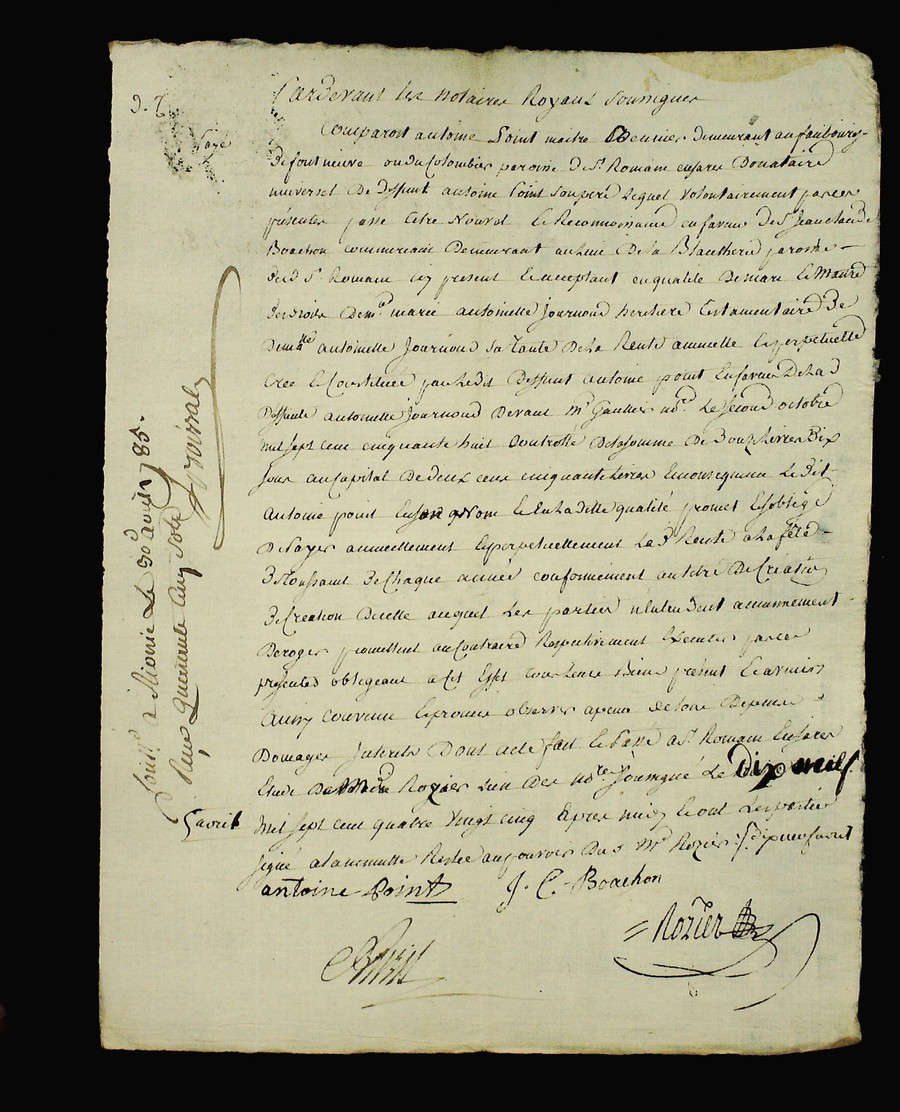 Pardevant les notaires Royaux soussignes
Comparoit antoine Point maitre demeurant au faubourg
de font neuve ou du Colombier paroisse de St Romain en jarez Donataire
universel De deffunt antoine Point son pere lequel volontairement par ces
présentes passe titre Nouvel et Reconnoissance en faveur de Sr Jean claude
Boachon commercant Demeurant au lieu De la paroisse
dud St Romain icy present et acceptant en qualité De mary et Maitre
des droits De mlle marie antoinette Journoud heritiere testamentaire de
Demlle antoinette Journoud sa Tante De la Rente annuelle et perpetuelle
Créé et Constituée par ledit Deffunt antoine point En faveur De lad
deffunte antoinette Journoud Devant Me Gaultier nore Le second octobre
mil sept cent cinquante huit De la somme De Douze livres Dix
sous au Capital De Deux cens cinquante livres En consequence Le dit
Antoine point En son nom et En laditte qualité promet et s'oblige
De Payer annuellement et perpetuellement La d Rente a la fête
De Toussaint De chaque année conformement au titre De Creation
De Creation D'icelle auquel Les parties n'entendent aucunement
Deroger promettent au Contraire Respectivement Executer par ces
presentes obligeant a cet effet tous Leurs biens présents et avenirs
Ainsy convenu et promis observer a peine de tous Depens
Domages Interets Dont acte fait et Passé a St Romain En jarez
Etude De Me Rozier L'un Des nores soussigné Le Dix neuf
mil sept cent quatre vingt cinq apres midy et ont Les parties
signé a la minutte Restée au pouvoir Dud Me Rozier
antoine Point J. C. Boachon
Rozier
Payé
avril
Le 30 avril 1785.
Reçu quarante Cinq Sols